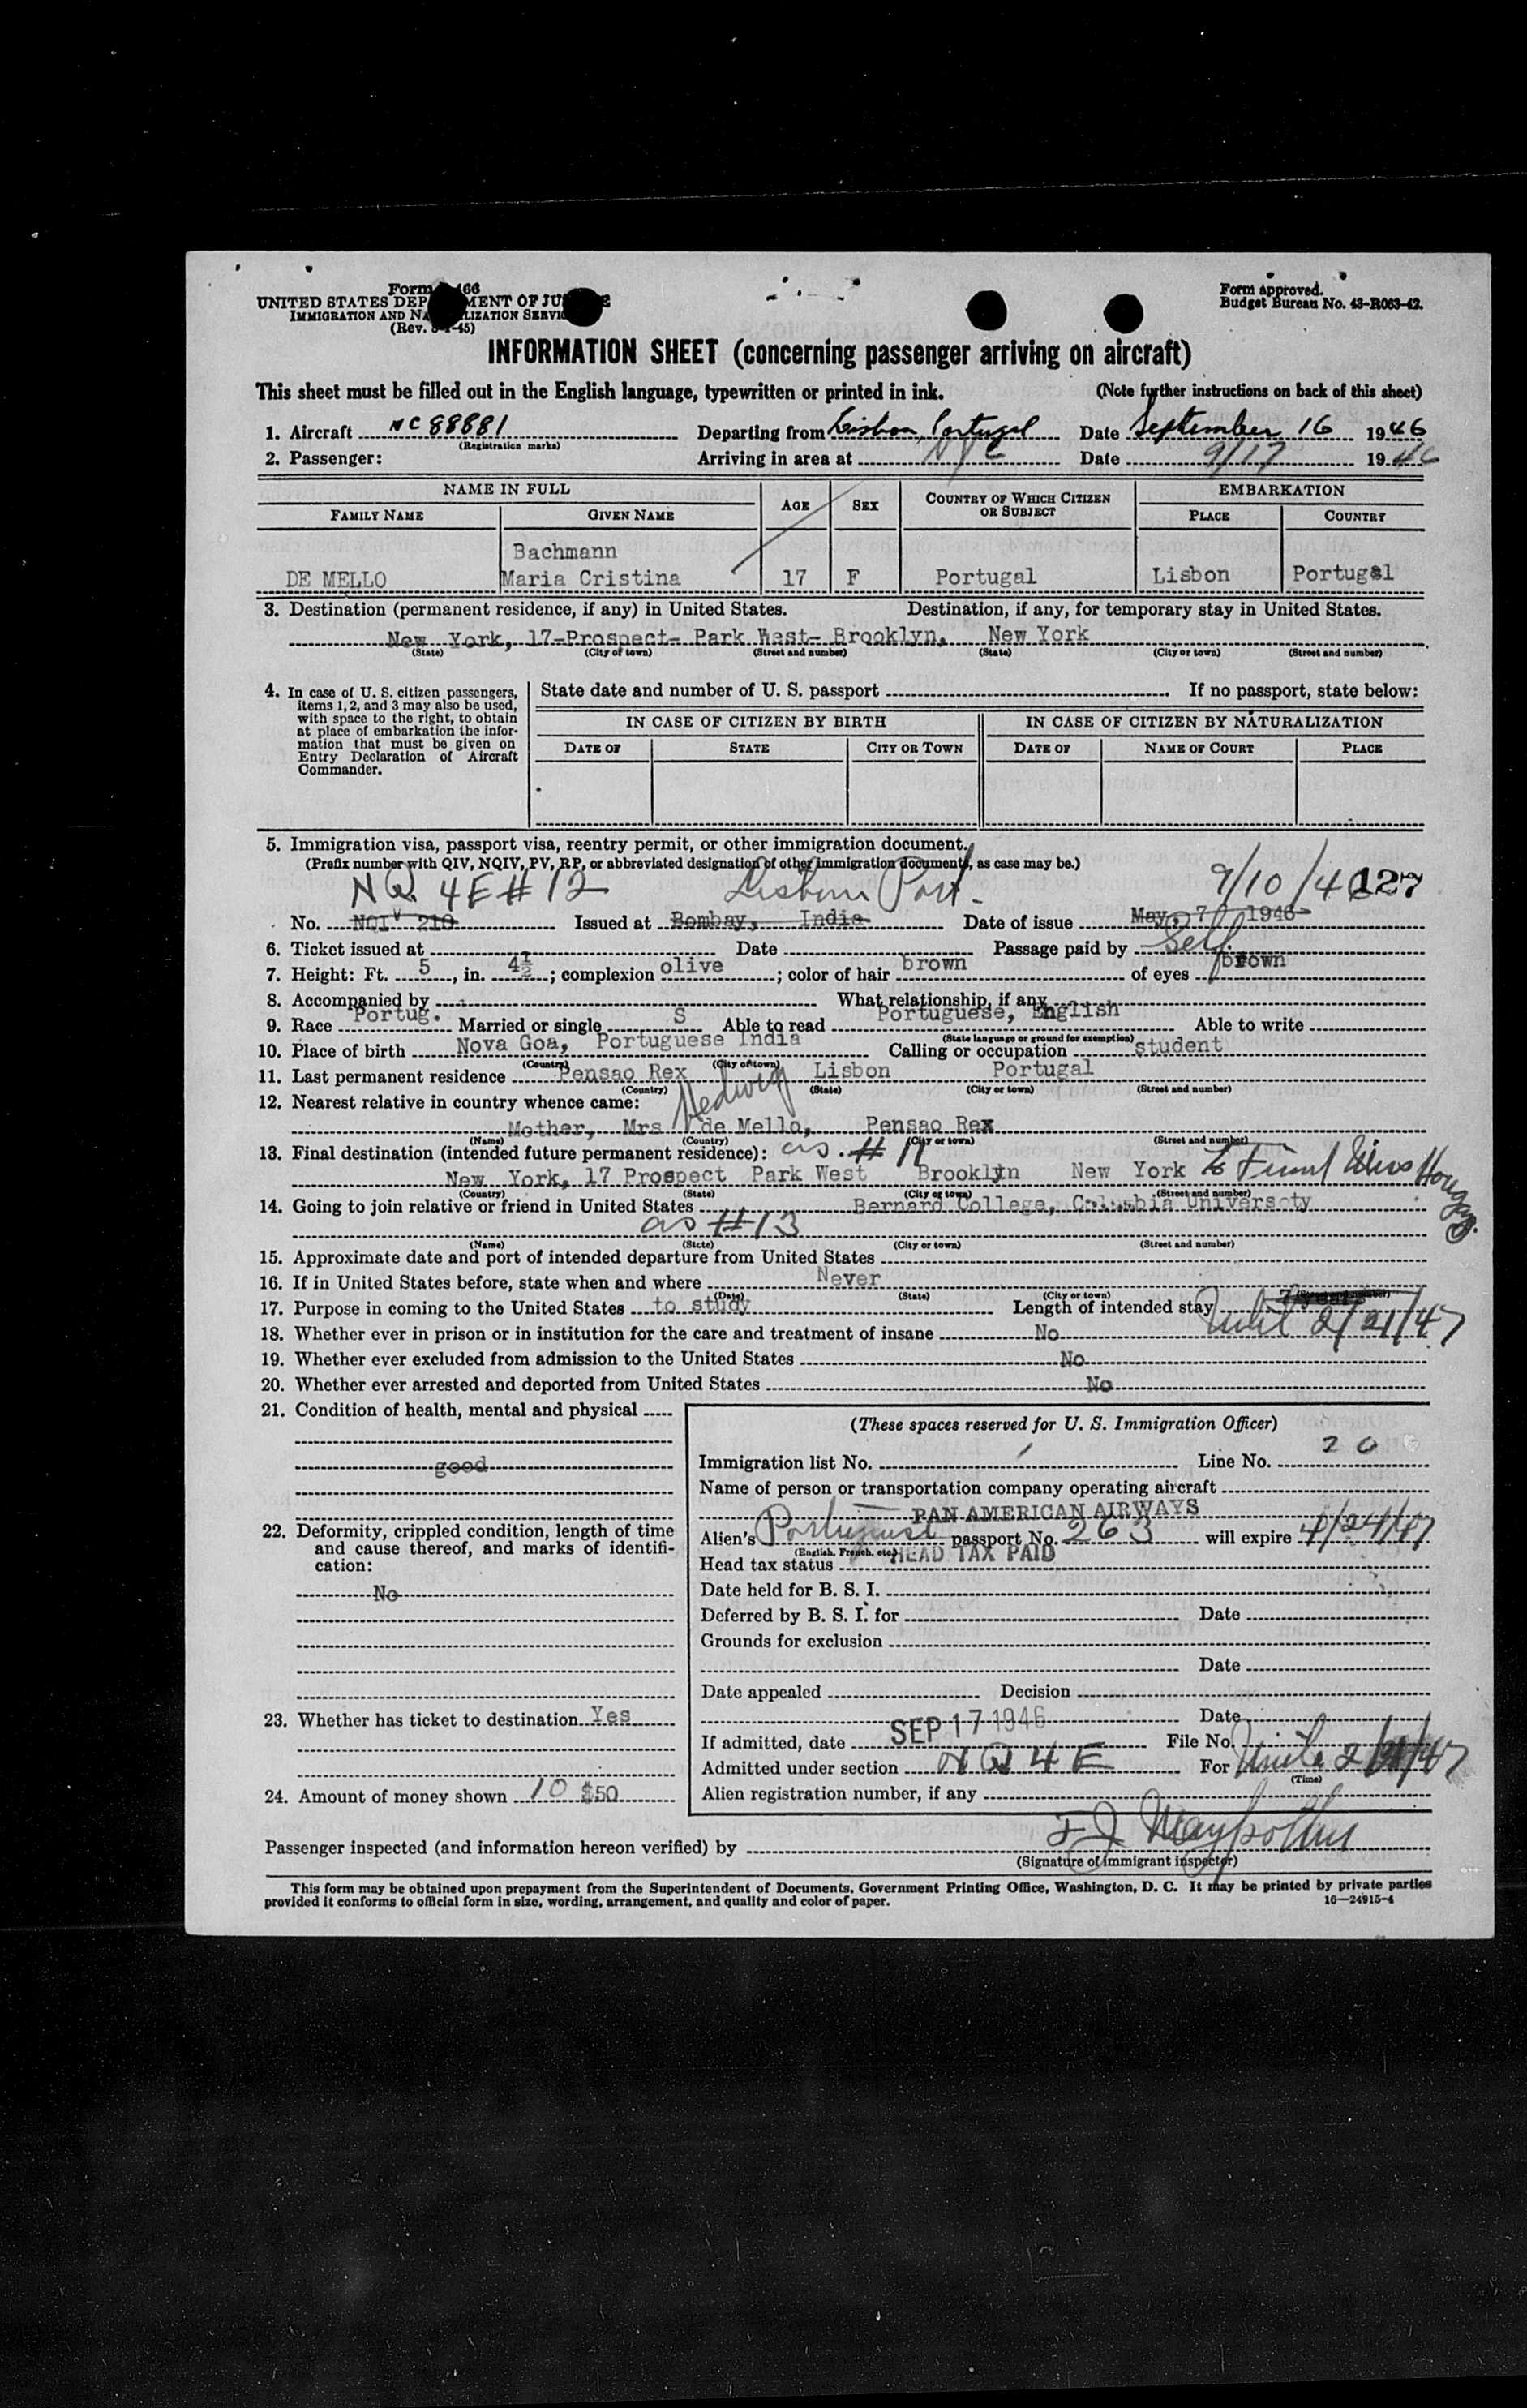 Form 466
UNITED STATES DEP MENT OF JU E
IMMIGRATION AND NA LIZATION SERVI
(Rev. -45)
Form approved.
Budget Bureau No. 43-R063-42.
INFORMATION SHEET (concerning passenger arriving on aircraft)
This sheet must be filled out in the English language, typewritten or printed in ink. (Note further instructions on back of this sheet)
1. Aircraft NC 88881 Departing from Lisbon, Portugal Date September 16 1946
(Registration marks)
2. Passenger: Arriving in area at NYC Date 9/17 1946
NAME IN FULL AGE SEX COUNTRY OF WHICH CITIZEN OR SUBJECT EMBARKATION
FAMILY NAME GIVEN NAME PLACE COUNTRY
Bachmann
DE MELLO Maria Cristina 17 F Portugal Lisbon Portugal
3. Destination (permanent residence, if any) in United States. Destination, if any, for temporary stay in United States.
New York, 17-Prospect- Park West- Brooklyn, New York
(State) (City or town) (Street and number) (State) (City or town) (Street and number)
4. In case of U. S. citizen passengers, items 1, 2, and 3 may also be used, with space to the right, to obtain at place of embarkation the information that must be given on Entry Declaration of Aircraft Commander.
State date and number of U. S. passport If no passport, state below:
IN CASE OF CITIZEN BY BIRTH IN CASE OF CITIZEN BY NATURALIZATION
DATE OF STATE CITY OR TOWN DATE OF NAME OF COURT PLACE
5. Immigration visa, passport visa, reentry permit, or other immigration document.
(Prefix number with QIV, NQIV, PV, RP, or abbreviated designation of other immigration documents, as case may be.)
NQ 4E # 12 Lisbon Port. 9/10/46 127
No. NQIV 210 Issued at Bombay, India Date of issue May, 7 1946
6. Ticket issued at Date Passage paid by Self
7. Height: Ft. 5, in. 4½; complexion olive; color of hair brown of eyes brown
8. Accompanied by What relationship, if any
9. Race Portug. Married or single S Able to read Portuguese, English Able to write
(State language or ground for exemption)
10. Place of birth Nova Goa, Portuguese India Calling or occupation student
(Country) (City or town)
11. Last permanent residence Pensao Rex Lisbon Portugal
(Country) (State) (City or town) (Street and number)
12. Nearest relative in country whence came: Hedwig
Mother, Mrs de Mello, Pensao Rex
(Name) (Country) (City or town) (Street and number)
13. Final destination (intended future permanent residence): as #11
New York, 17 Prospect Park West Brooklin New York
(Country) (State) (City or town) (Street and number)
14. Going to join relative or friend in United States Bernard College, Columbia Universoty
as #13
(Name) (State) (City or town) (Street and number)
15. Approximate date and port of intended departure from United States
16. If in United States before, state when and where Never
(Date) (State) (City or town)
17. Purpose in coming to the United States to study Length of intended stay until 2/21/47
18. Whether ever in prison or in institution for the care and treatment of insane No
19. Whether ever excluded from admission to the United States No
20. Whether ever arrested and deported from United States No
21. Condition of health, mental and physical
good
22. Deformity, crippled condition, length of time and cause thereof, and marks of identification:
No
23. Whether has ticket to destination Yes
24. Amount of money shown 10 $50
(These spaces reserved for U. S. Immigration Officer)
Immigration list No. Line No. 20
Name of person or transportation company operating aircraft
PAN AMERICAN AIRWAYS
Alien's Portuguese passport No. 263 will expire 4/24/47
(English, French, etc.)
Head tax status HEAD TAX PAID
Date held for B. S. I.
Deferred by B. S. I. for Date
Grounds for exclusion
Date
Date appealed Decision
Date
If admitted, date SEP 17 1946 File No.
Admitted under section NQ 4E For Until 2/21/47
(Time)
Alien registration number, if any
Passenger inspected (and information hereon verified) by
(Signature of immigrant inspector)
This form may be obtained upon prepayment from the Superintendent of Documents, Government Printing Office, Washington, D. C. It may be printed by private parties
provided it conforms to official form in size, wording, arrangement, and quality and color of paper. 16—24915-4